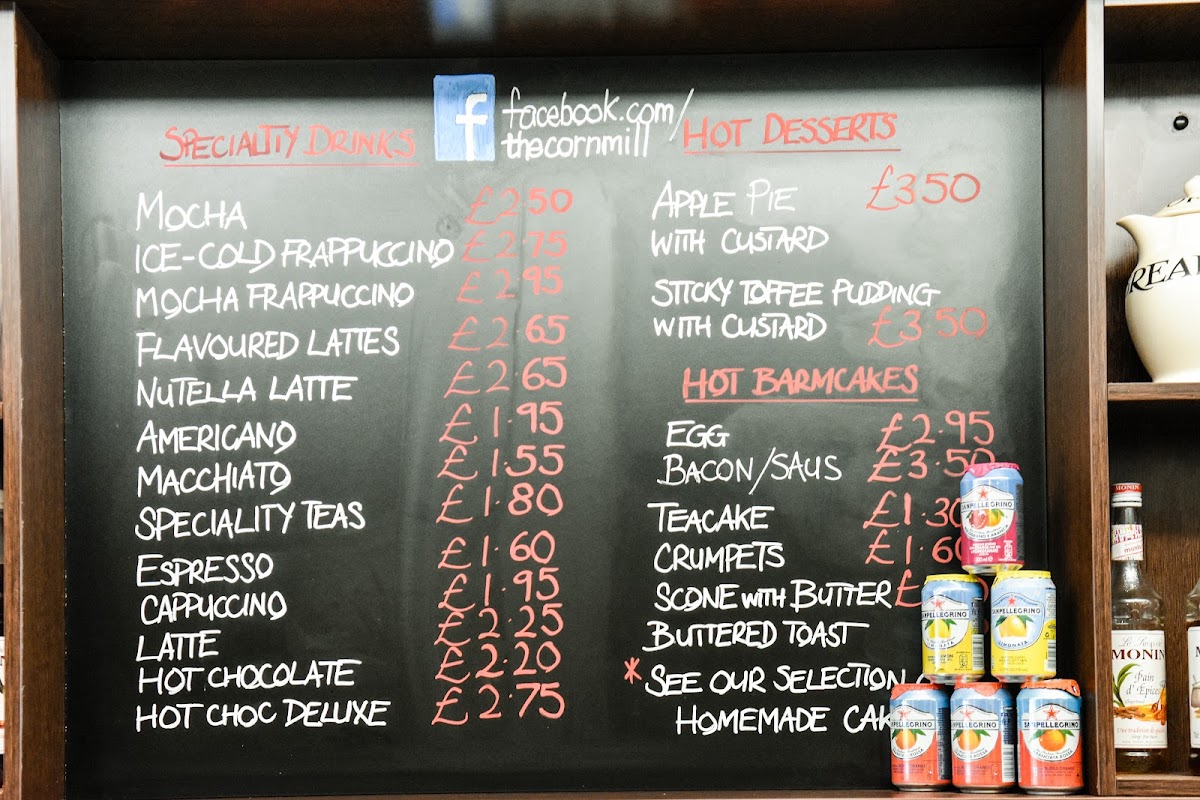 f facebook.com/
thecornmill
SPECIALITY DRINKS
MOCHA £2.50
ICE-COLD FRAPPUCCINO £2.75
MOCHA FRAPPUCCINO £2.95
FLAVOURED LATTES £2.65
NUTELLA LATTE £2.65
AMERICANO £1.95
MACCHIATO £1.55
SPECIALITY TEAS £1.80
ESPRESSO £1.60
CAPPUCCINO £1.95
LATTE £2.25
HOT CHOCOLATE £2.20
HOT CHOC DELUXE £2.75
HOT DESSERTS
APPLE PIE £350
WITH CUSTARD
STICKY TOFFEE PUDDING
WITH CUSTARD £3.50
HOT BARMCAKES
EGG £2.95
BACON/SAUS £3.50
TEACAKE £1.30
CRUMPETS £1.60
SCONE WITH BUTTER £
BUTTERED TOAST
* SEE OUR SELECTION
HOMEMADE CAK
SANPELLEGRINO
SANPELLEGRINO
SANPELLEGRINO
LIMONATA
SANPELLEGRINO
SANPELLEGRINO
SANPELLEGRINO
READ
MONIN
MONIN
Pain
d'Epices